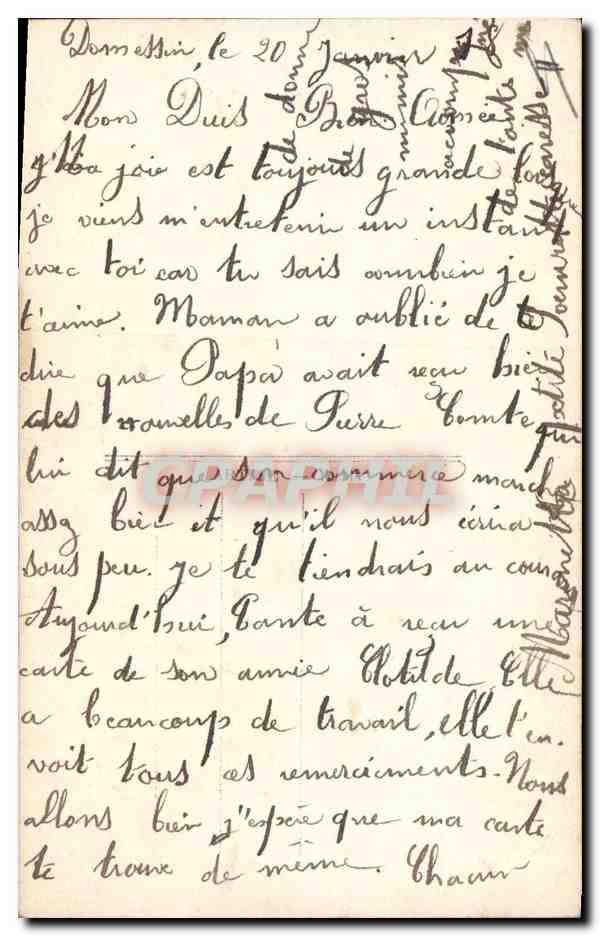 Domessin, le 20 Janvier
Mon Puis Bien Aimée
Ma joie est toujours grande lorsque
je viens m'entretenir un instant
avec toi car tu sais combien je
t'aime. Maman a oublié de te
dire que Papa avait reçu hier
des nouvelles de Pierre Comte qui
lui dit que son commerce marche
assez bien et qu'il nous écrira
sous peu. je te tiendrais au courant
Aujourd'hui, Tante à reçu une
carte de son amie Clotilde Elle
a beaucoup de travail, elle t'en.
voit tous ces remerciements. Nous
allons bien, j'espère que ma carte
te trouve de même. Chacun
de donne
de gros
mimis
accompagnés
de toute
tendresse
Marinette
petite
CPAPHIL